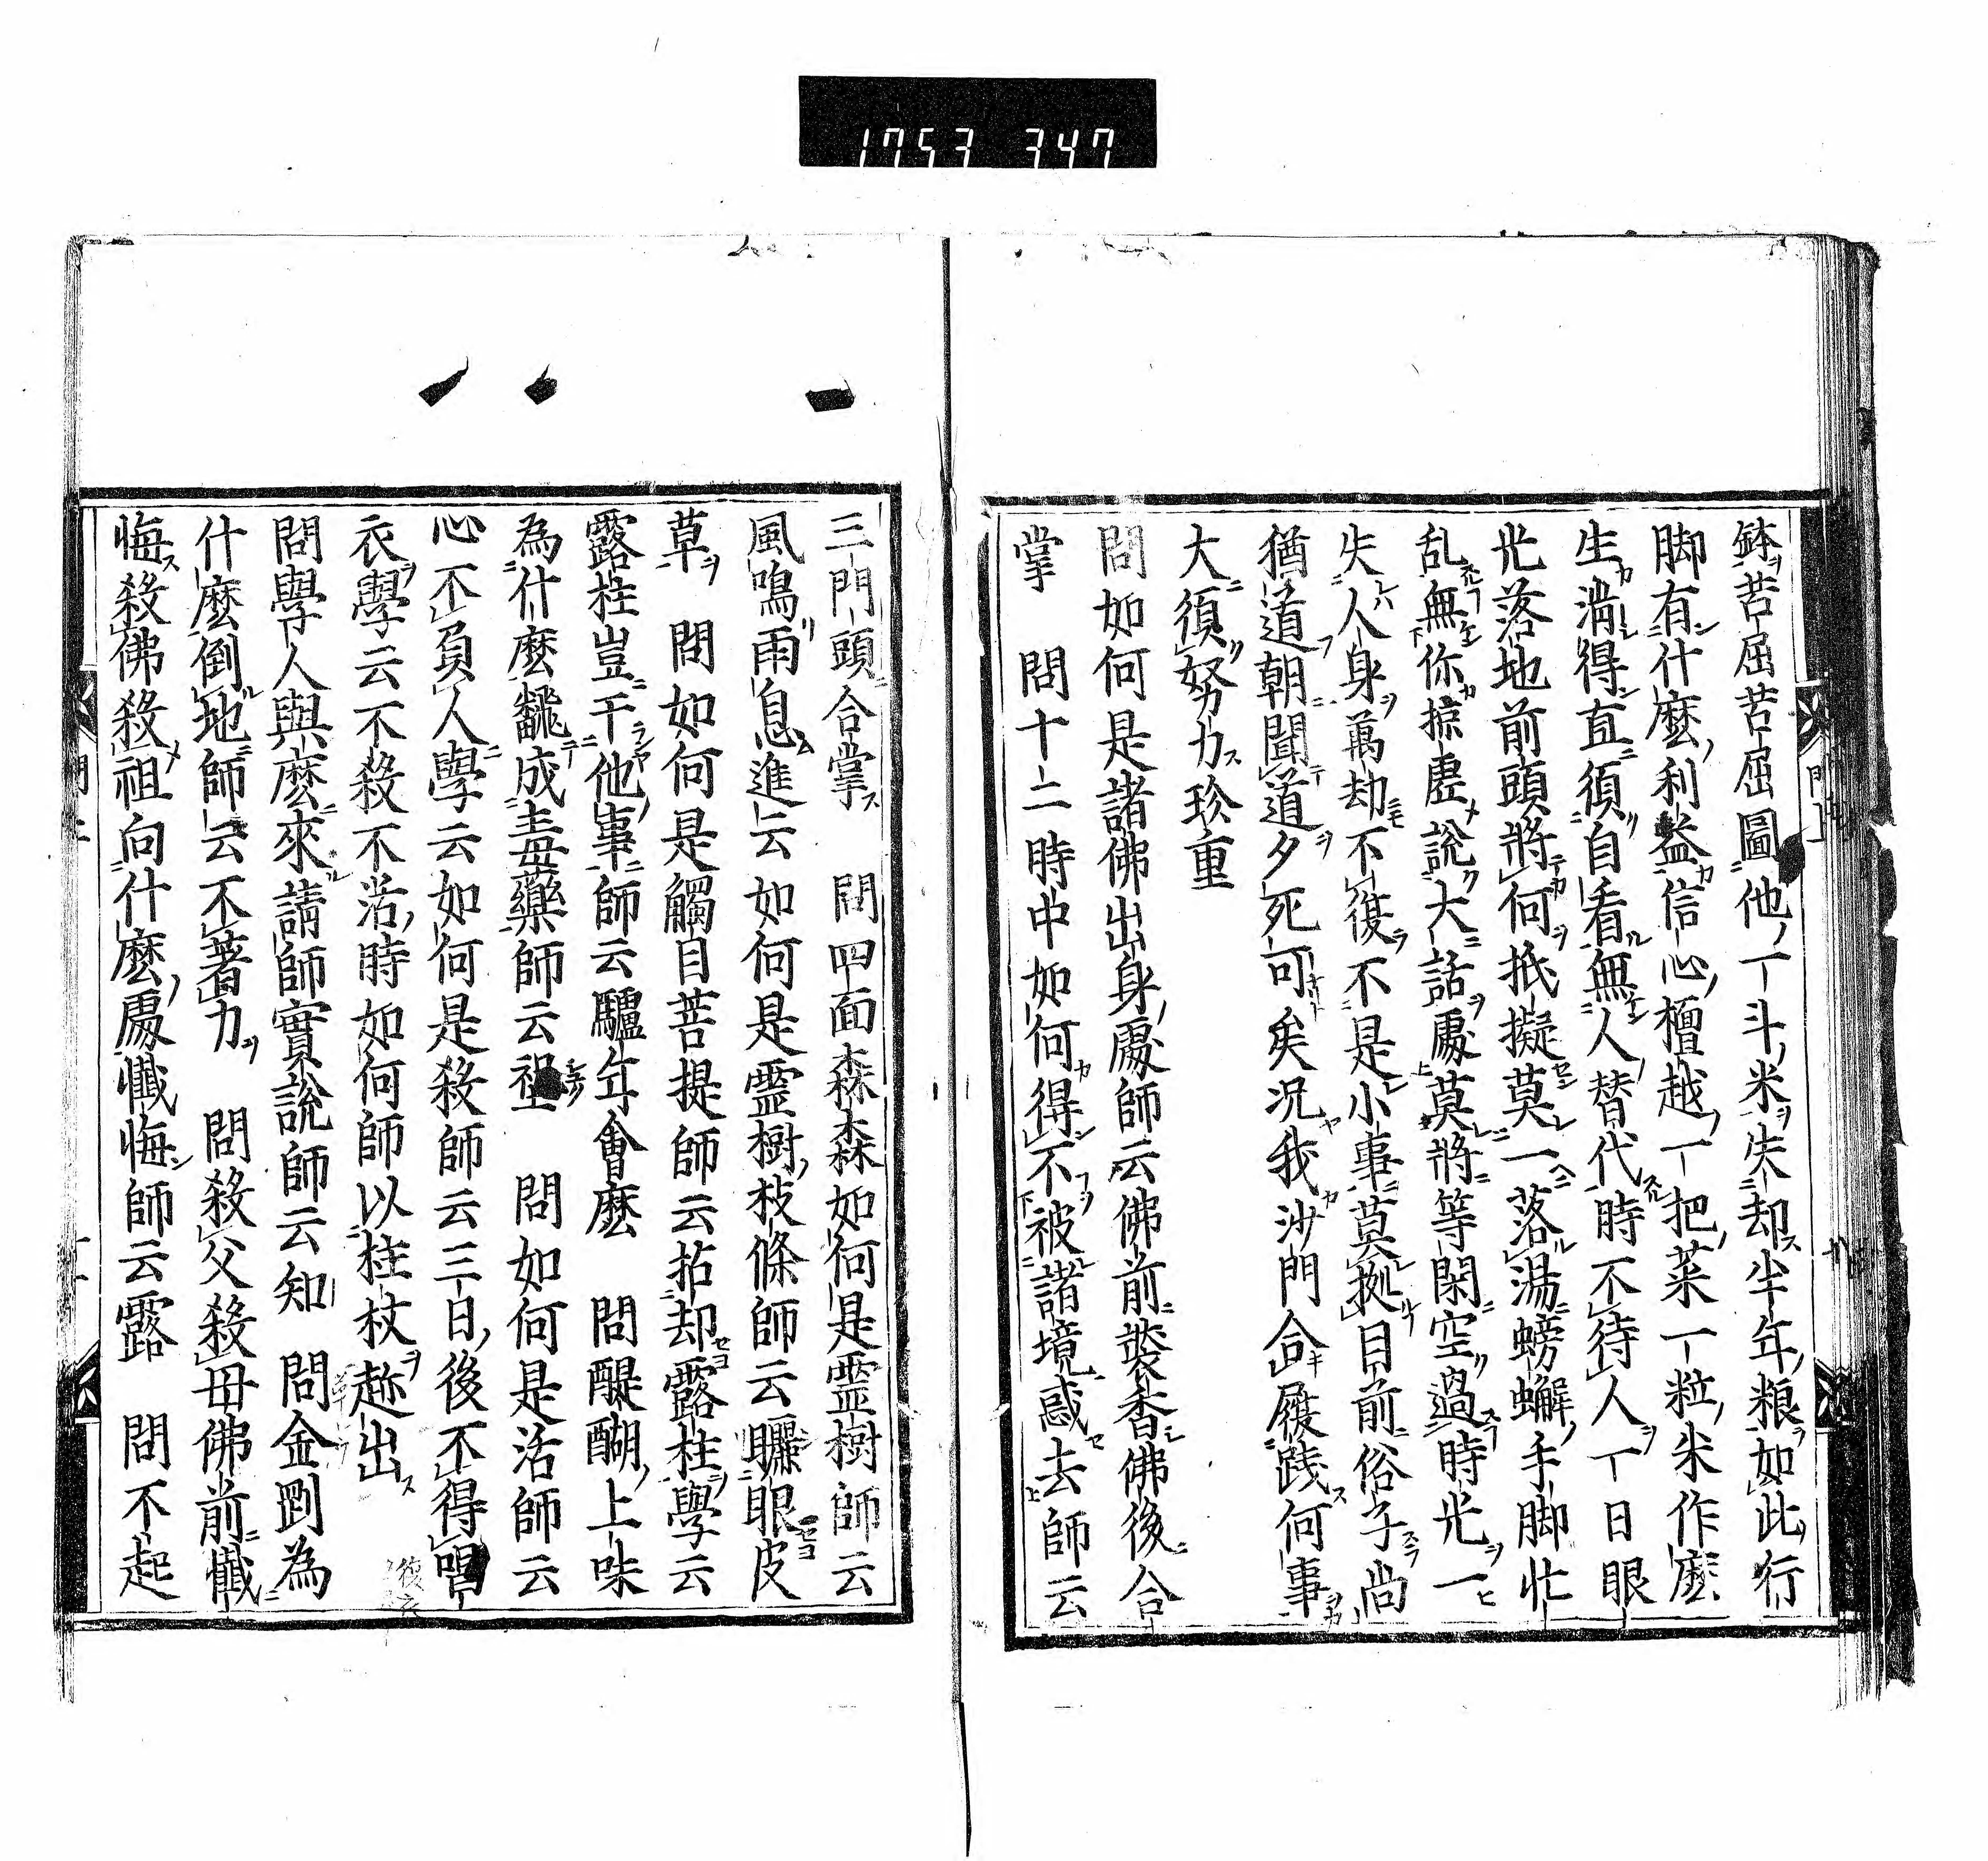 1753 347
鉢苦屈苦屈圖他一斗米失却半年粮如此行
脚有什麼利益信心檀越一把菜一粒米作麼
生満得直須自看無人替代時不待人一日眼
光落地前頭將何抵擬莫一落湯螃蠏手脚忙
乱無你掠虚說大話處莫將等閑空過時光一
失人身萬劫不復不是小事莫據目前俗子尚
猶道朝聞道夕死可矣況我沙門合履践何事
大須努力珍重
問如何是諸佛出身處師云佛前裝香佛後合
掌　問十二時中如何得不被諸境惑去師云
三門頭合掌　問四面森森如何是靈樹師云
風鳴雨息進云如何是靈樹枝條師云曬眼皮
草　問如何是觸目菩提師云拈却露柱學云
露柱豈干他事師云驢年會麼　問醍醐上味
為什麼飜成毒藥師云　問如何是活師云
心不負人學云如何是殺師云三日後不得唱
衣學云不殺不活時如何師以柱杖趂出
問學人與麼來請師實說師云知　問金剛為
什麼倒地師云不著力　問殺父殺母佛前懺
悔殺佛殺祖向什麼處懺悔師云露　問不起